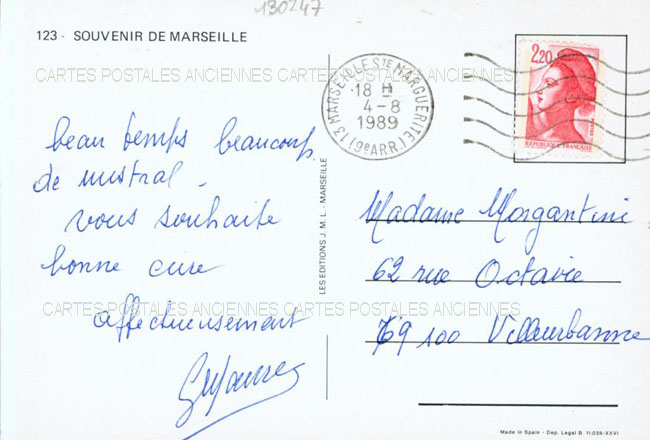 130247
123 - SOUVENIR DE MARSEILLE
CARTES POSTALES ANCIENNES CARTES POSTALES ANCIENNES
13 MARSEILLE STE MARGUERITE (9e ARR.)
18 H
4-8
1989
2,20
REPUBLIQUE FRANÇAISE
beau temps beaucoup
de mistral.
vous souhaite
bonne cure
affectueusement
LES EDITIONS J. M. L. - MARSEILLE
Madame Morgantini
62 rue Octavie
69 100 Villeurbanne
CARTES POSTALES ANCIENNES CARTES POSTALES ANCIENNES
Made in Spain - Dep. Legal B. 11.035-XXVI